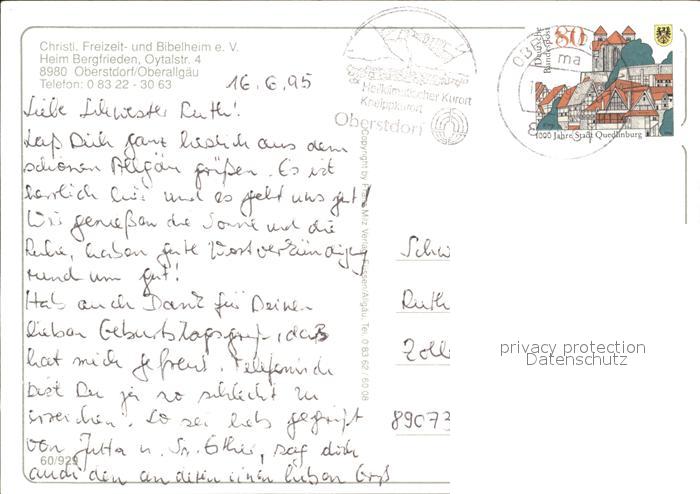 Christl. Freizeit- und Bibelheim e. V.
Heim Bergfrieden, Oytalstr. 4
8980 Oberstdorf/Oberallgäu
Telefon: 0 83 22 - 30 63
16. 6. 95
Liebe Schwester Ruth!
Laß Dich ganz herzlich aus dem
schönen Allgäu grüßen. Es ist
herrlich hier und es geht uns gut!
Wir genießen die Sonne und die
Ruhe, haben gute Wortverkündigung
rund um gut!
Hab auch Dank für Deinen
lieben Geburtstagsgruß, daß
hat mich gefreut. Telefonisch
bist Du ja so schlecht zu
erreichen. So sei lieb gegrüßt
von Jutta u. Sr. Esther, sag doch
auch den anderen einen lieben Gruß
60/929
Heilklimatischer Kurort
Kneippkurort
Oberstdorf
Deutsche Bundespost
80
1000 Jahre Stadt Quedlinburg
Schw
Ruth
Zoll
89073
privacy protection
Datenschutz